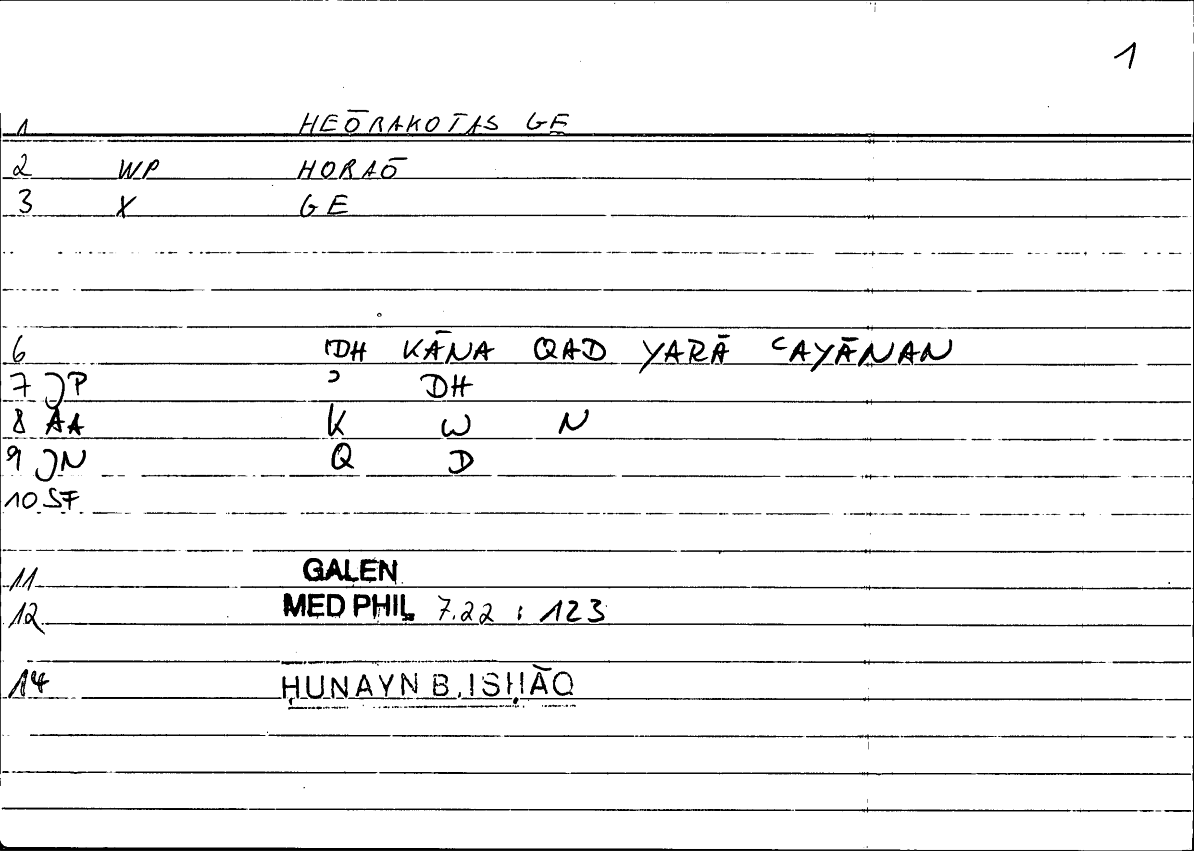 1
1 HEŌRAKOTAS GE
2 WP HORAŌ
3 X GE
6 'DH KĀNA QAD YARĀ ʿAYĀNAN
7 JP ʾ DH
8 AA K W N
9 JN Q D
10 SF
11 GALEN
12 MED PHIL 7.22 : 123
14 ḤUNAYN B. ISḤĀQ